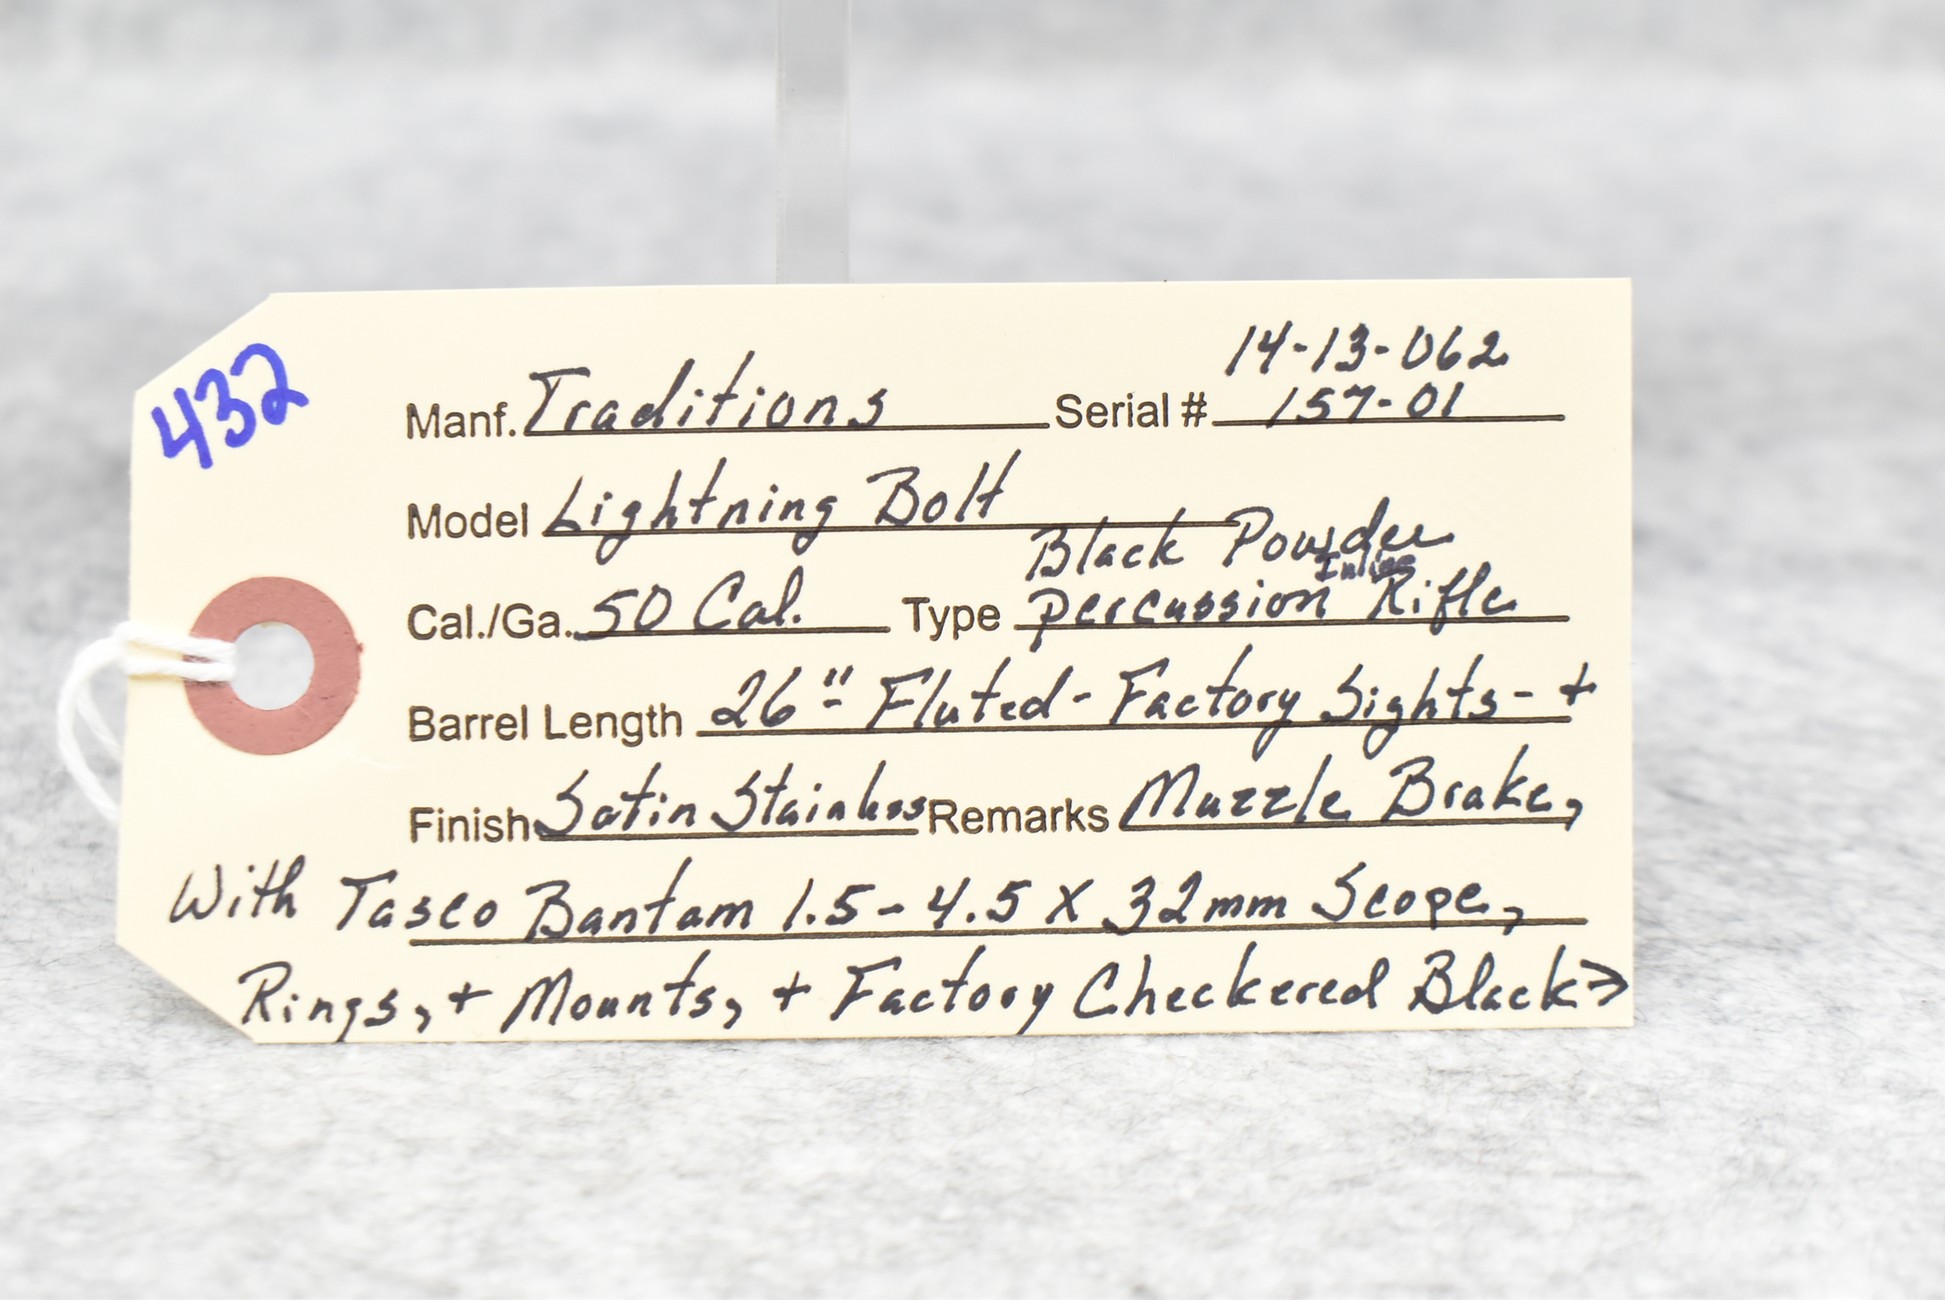 432
14-13-062
Manf. Traditions Serial # 157-01
Model Lightning Bolt
Black Powder
Inline
Cal./Ga. 50 Cal. Type Percussion Rifle
Barrel Length 26" - Fluted - Factory Sights - +
Finish Satin Stainless Remarks Muzzle Brake,
With Tasco Bantam 1.5 - 4.5 X 32mm Scope,
Rings, + Mounts, + Factory Checkered Black →